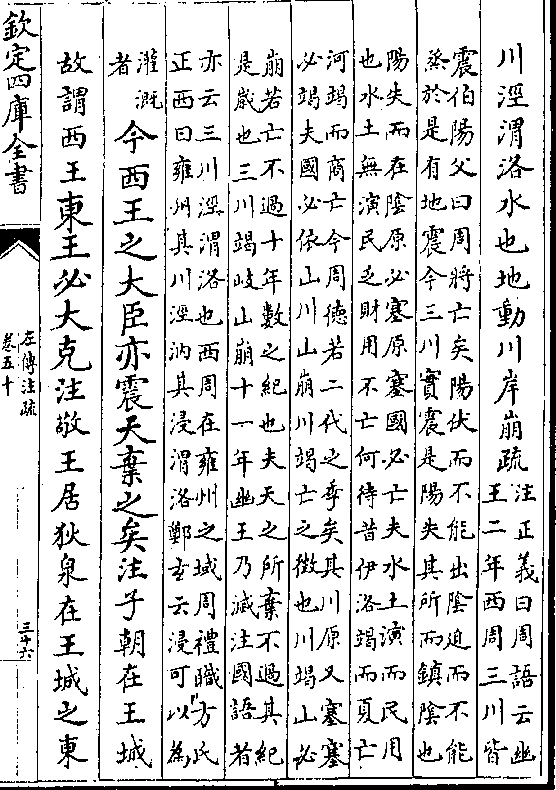 川涇渭洛水也地動川岸崩疏
注正義曰周語云幽
王二年西周三川皆
震伯陽父曰周將亡矣陽伏而不能出陰迫而不能
蒸於是有地震今三川實震是陽失其所而鎮陰也
陽失而在陰原必塞原塞國必亡夫水土演而民用
也水土無演民乏財用不亡何待昔伊洛竭而夏亡
河竭而商亡今周德若二代之季矣其川原又塞塞
必竭夫國必依山川山崩川竭亡之徵也川竭山必
崩若亡不過十年數之紀也夫天之所棄不過其紀
是嵗也三川竭岐山崩十一年幽王乃滅注國語者
亦云三川涇渭洛也西周在雍州之域周禮職方氏
正西曰雍州其川涇汭其浸渭洛鄭玄云浸可以為
灌溉
者
今西王之大臣亦震天棄之矣注子朝在王城
故謂西王東王必大克注敬王居狄泉在王城之東
欽定四庫全書
左傳注疏
卷五十
三十六